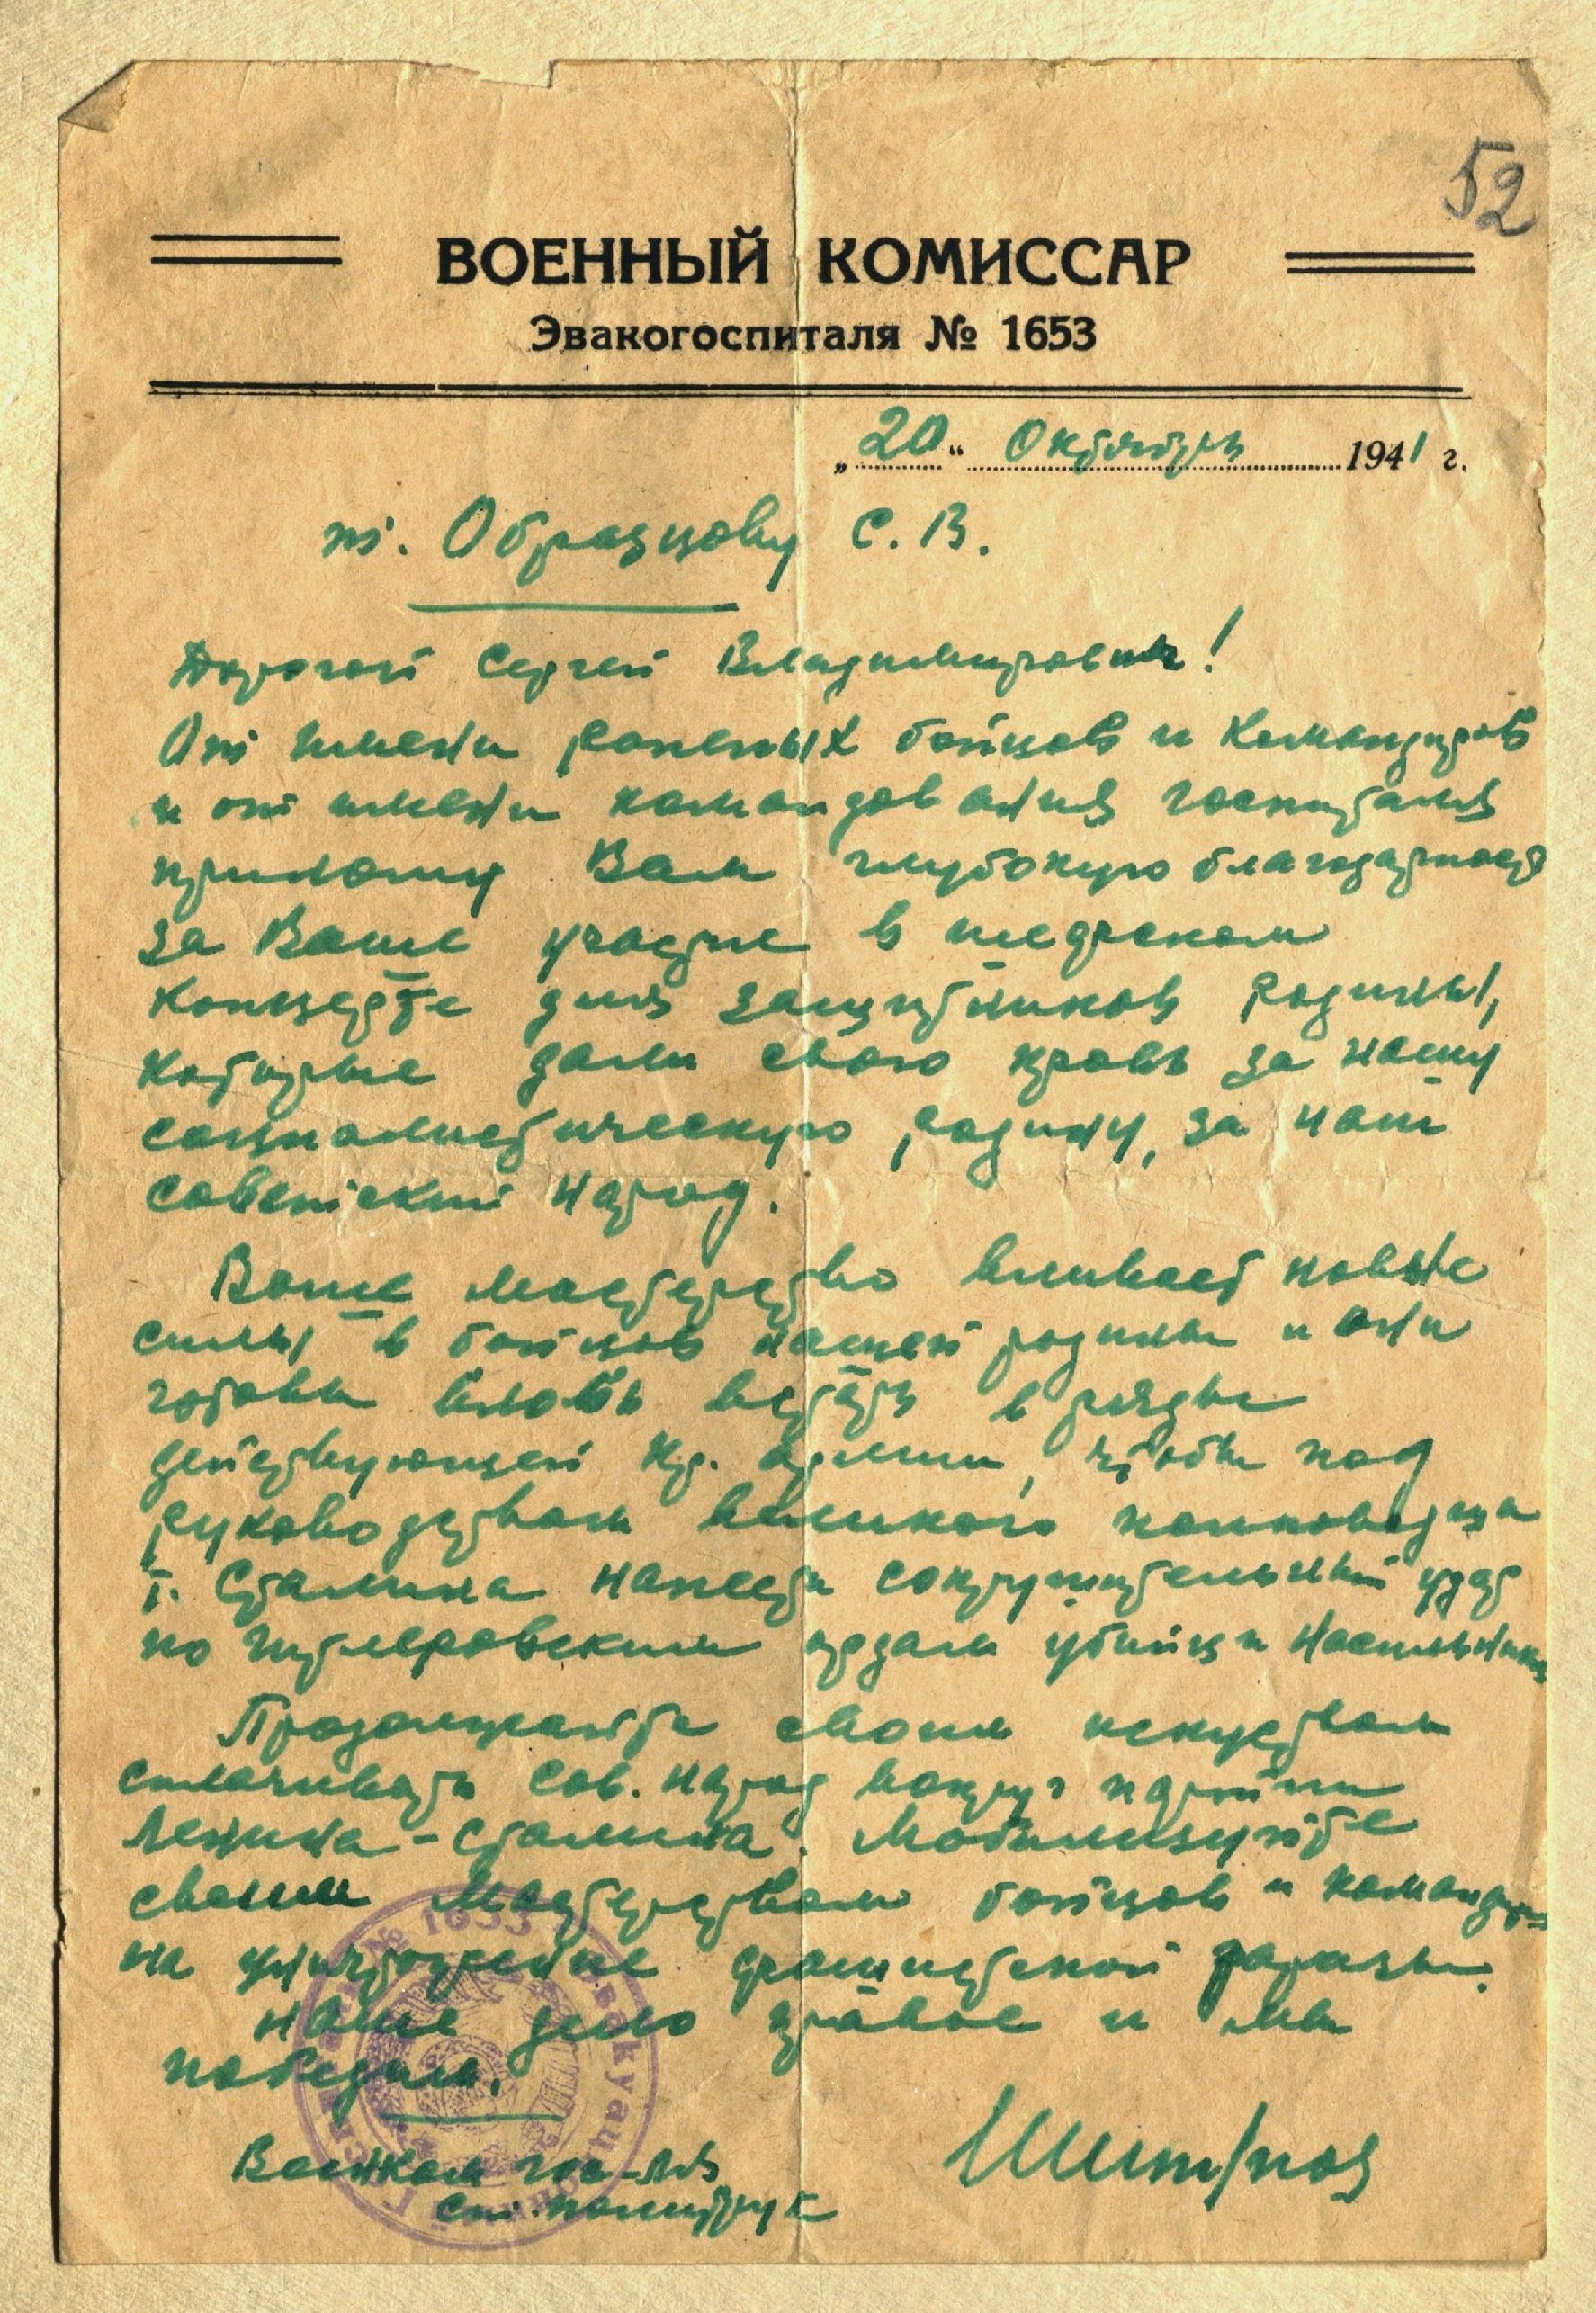 52
ВОЕННЫЙ КОМИССАР
Эвакогоспиталя № 1653
„20“ Октября 1941 г.
т. Образцову С. В.
Дорогой Сергей Владимирович!
От имени раненых бойцов и командиров
и от имени командования госпиталя
приношу Вам глубокую благодарность
за Ваше участие в шефском
концерте для защитников родины,
которые дали свою кровь за нашу
социалистическую родину, за наш
советский народ.
Ваше мастерство вливает новые
силы в бойцов нашей родины и они
готовы вновь встать в ряды
действующей Кр. армии, чтобы под
руководством великого полководца
т. Сталина нанести сокрушительный удар
по гитлеровским ордам убийц и насильников
Продолжайте своим искусством
сплачивать сов. народ вокруг партии
Ленина-Сталина. Мобилизуйте
своим мастерством бойцов и командиров
на уничтожение фашистской заразы.
Наше дело правое и мы
победим.
Военком гос-ля
Ст. политрук
№ 1653